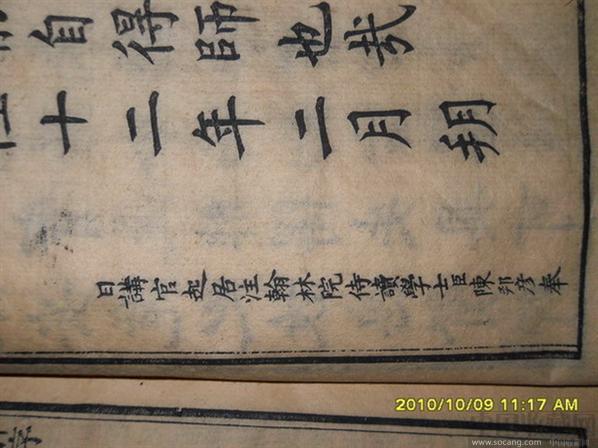 自得師也哉
十二年二月朔
日講官起居注翰林院侍讀學士臣陳邦彥奉
2010/10/09 11:17 AM
www.socang.com